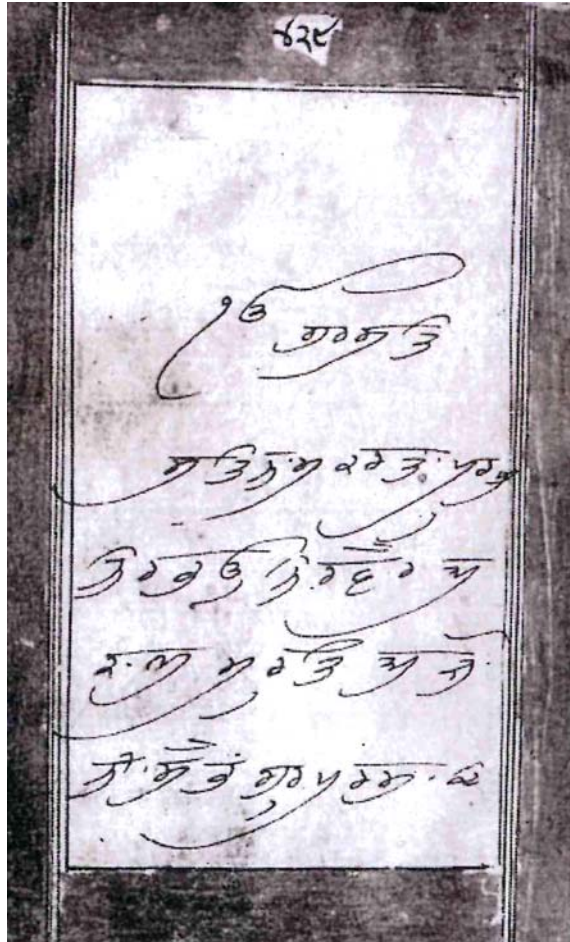 ੪੨੯
ੴ ਗੁਰਸਤਿ
ਸਤਿਨਾਮੁ ਕਰਤਾ ਪੁਰਖੁ
ਨਿਰਭਉ ਨਿਰਵੈਰ ਅ
ਕਾਲ ਮੂਰਤਿ ਅਜੋ
ਨੀ ਸੈਭੰ ਗੁਰਪਰਸਾਦ